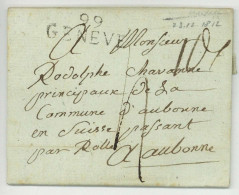 99
GENÈVE
A Monsieur
Rodolphe Chavanne
principaux de La
Commune d'aubonne
en Suisse passant
par Rolle
A aubonne